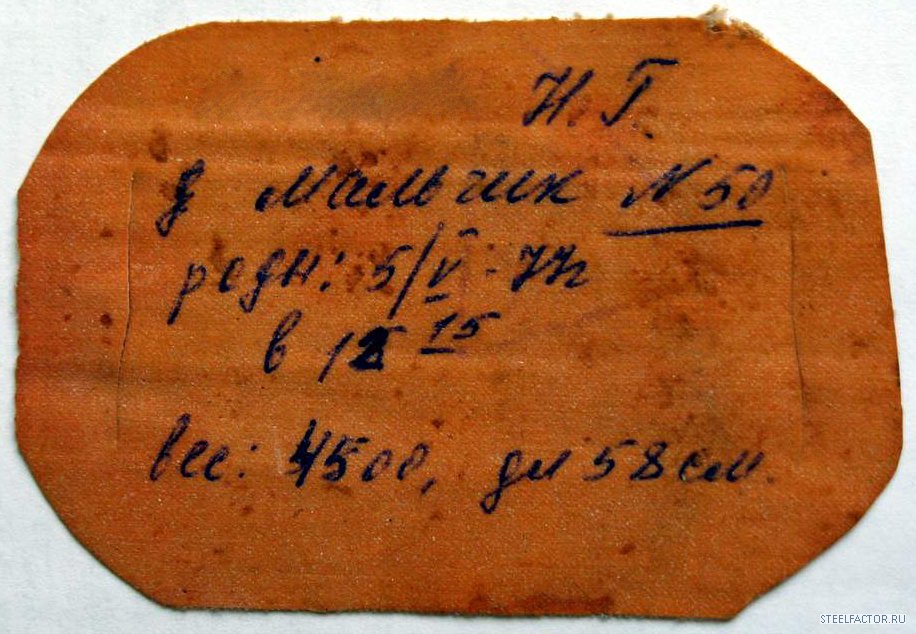 Н. Г.
мальчик N 50
родн: 5/V - 77г
в 12 15
вес: 4500, дл 58 см.
STEELFACTOR.RU